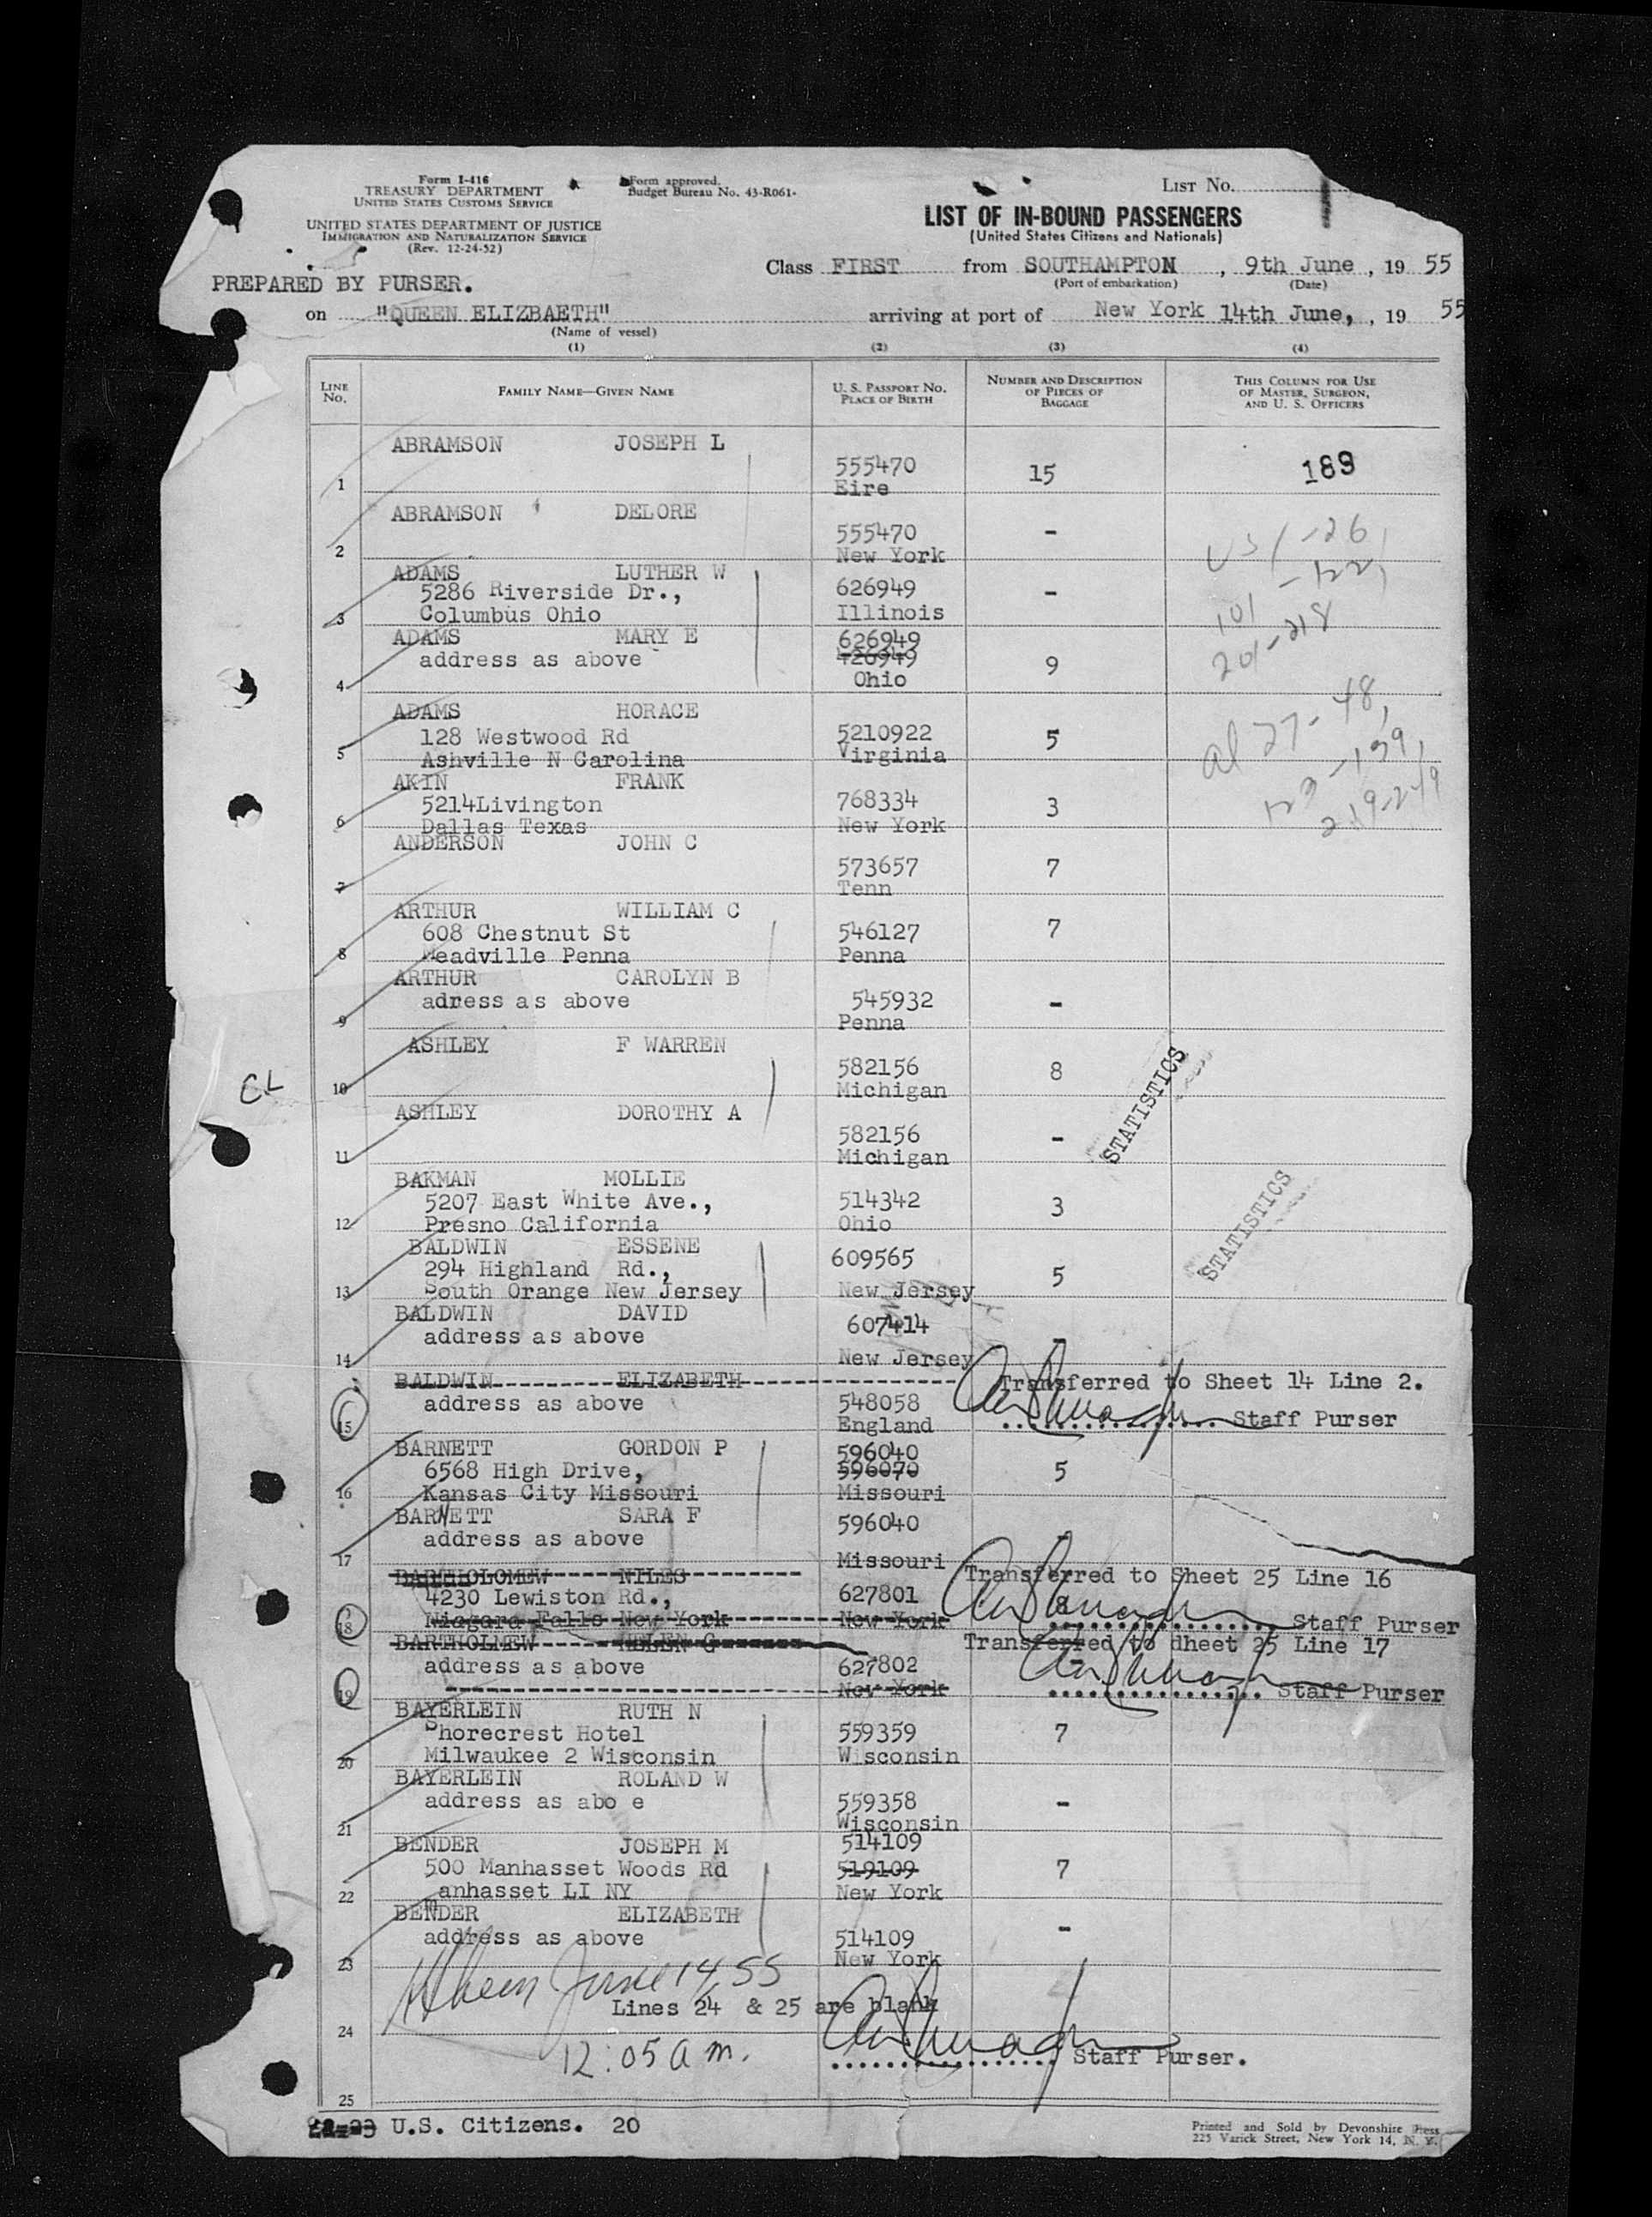 Form I-416
TREASURY DEPARTMENT
UNITED STATES CUSTOMS SERVICE
UNITED STATES DEPARTMENT OF JUSTICE
IMMIGRATION AND NATURALIZATION SERVICE
(Rev. 12-24-52)
Form approved.
Budget Bureau No. 43-R061-
LIST No.
LIST OF IN-BOUND PASSENGERS
(United States Citizens and Nationals)
Class FIRST from SOUTHAMPTON, 9th June, 19 55
(Port of embarkation) (Date)
PREPARED BY PURSER.
on "QUEEN ELIZBAETH" arriving at port of New York 14th June, , 19 55
(Name of vessel)
(1) (2) (3) (4)
LINE No. FAMILY NAME—GIVEN NAME U. S. PASSPORT No. PLACE OF BIRTH NUMBER AND DESCRIPTION OF PIECES OF BAGGAGE THIS COLUMN FOR USE OF MASTER, SURGEON, AND U. S. OFFICERS
ABRAMSON JOSEPH L
1 555470 15 189
Eire
ABRAMSON DELORE
2 555470 -
New York
US 1-26,
ADAMS LUTHER W
5286 Riverside Dr., 626949 -
3 Columbus Ohio Illinois
101-122,
201-218
ADAMS MARY E 626949
address as above 426949 9
4 Ohio
ADAMS HORACE
128 Westwood Rd 5210922 5
5 Ashville N Carolina Virginia
al 27-48,
123-139,
219-249
AKIN FRANK
5214Livington 768334 3
6 Dallas Texas New York
ANDERSON JOHN C
7 573657 7
Tenn
ARTHUR WILLIAM C
608 Chestnut St 546127 7
8 Meadville Penna Penna
ARTHUR CAROLYN B
adress as above 545932 -
9 Penna
ASHLEY F WARREN
CL 10 582156 8
Michigan
ASHLEY DOROTHY A
11 582156 -
Michigan
STATISTICS
BAKMAN MOLLIE
5207 East White Ave., 514342 3
12 Presno California Ohio
STATISTICS
BALDWIN ESSENE 609565
294 Highland Rd., 5
13 South Orange New Jersey New Jersey
BALDWIN DAVID 607414
address as above -
14 New Jersey
BALDWIN ELIZABETH Transferred to Sheet 14 Line 2.
address as above 548058
15 England Staff Purser
BARNETT GORDON P 596040
6568 High Drive, 596070 5
16 Kansas City Missouri Missouri
BARNETT SARA F 596040
address as above -
17 Missouri
BARTHOLOMEW NILES Transferred to Sheet 25 Line 16
4230 Lewiston Rd., 627801 8
18 Niagara Falls New York New York Staff Purser
BARTHOLMEW HELEN G Transferred to dheet 25 Line 17
address as above 627802 -
19 New York Staff Purser
BAYERLEIN RUTH N
Shorecrest Hotel 559359 7
20 Milwaukee 2 Wisconsin Wisconsin
BAYERLEIN ROLAND W
address as abo e 559358 -
21 Wisconsin
BENDER JOSEPH M 514109
500 Manhasset Woods Rd 519109 7
22 manhasset LI NY New York
BENDER ELIZABETH
address as above 514109 -
23 New York
June 14, 55
Lines 24 & 25 are blank
24
12:05 a m. Staff Purser.
25
U.S. Citizens. 20
Printed and Sold by Devonshire Press
225 Varick Street, New York 14, N. Y.